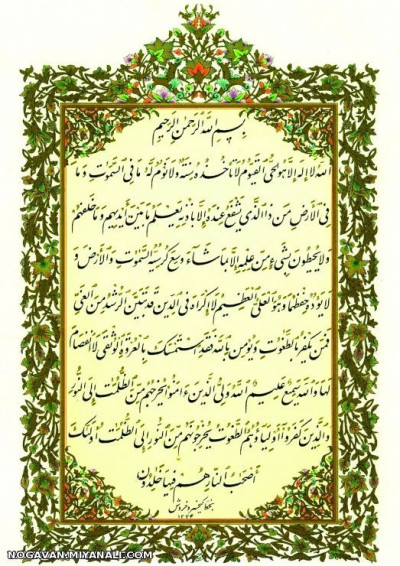 بسم الله الرحمن الرحیم
الله لا إله إلا هو الحی القیوم لا تأخذه سنة ولا نوم له ما فی السموت و ما
فی الأرض من ذا الذی یشفع عنده إلا بإذنه یعلم ما بین أیدیهم و ما خلفهم
ولا یحیطون بشیء من علمه إلا بما شاء وسع کرسیه السموت والأرض و
لا یوده حفظهما وهو العلی العظیم لا إکراه فی الدین قد تبین الرشد من الغی
فمن یکفر بالطغوت و یومن بالله فقد استمسک بالعروة الوثقی لا انفصام
لها والله سمیع علیم الله ولی الذین ءامنوا یخرجهم من الظلمت إلی النور
والذین کفروا أولیاؤهم الطغوت یخرجونهم من النور إلی الظلمت أولئک
أصحب النار هم فیها خلدون
NOGAVAN.MIYANALI.COM